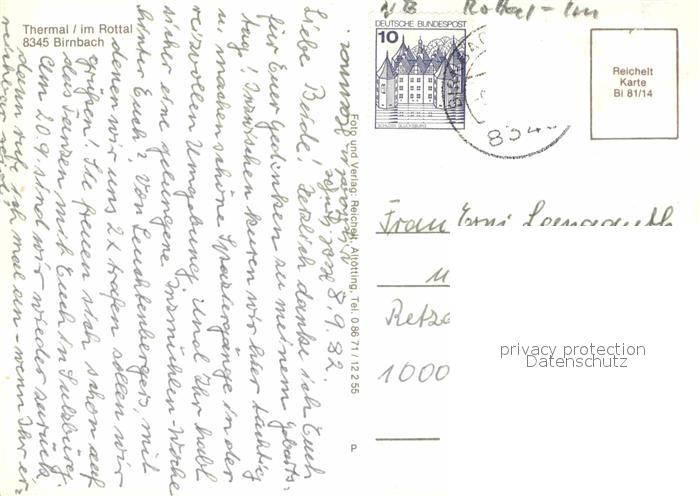 Thermal / im Rottal
8345 Birnbach
8.9.82.
Liebe Beide! Herzlich danke ich Euch
für Euer gedenken zu meinem Geburts-
tag! Inzwischen kuren wir hier tüchtig
u. machen schöne Spaziergänge in der
reizvollen Umgebung. Und Ihr habt
sicher eine gelungene -Woche
hinter Euch? Von Leuchtenbergers, mit
denen wir uns 2x trafen sollen wir
grüßen! Sie freuen sich schon auf
das Tanzen mit Euch in Sulzburg.
Am 20.9. sind wir wieder zurück
dann rufe ich mal an - wenn Ihr er-
reichbar seid
Foto und Verlag: Reichelt, Altötting, Tel. 0 86 71 / 12 2 55
P
DEUTSCHE BUNDESPOST
10
SCHLOSS GLÜCKSBURG
8345
Rottal-Inn
Reichelt
Karte
Bi 81/14
Frau Erni
1000
privacy protection
Datenschutz